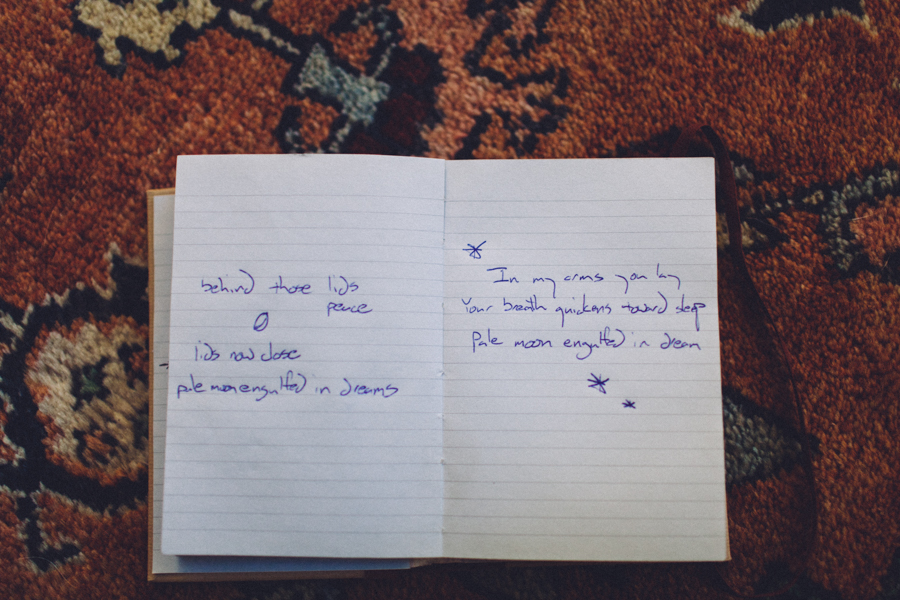 behind those lids
peace
lids now close
pale moon engulfed in dreams
In my arms you lay
Your breath quickens toward sleep
Pale moon engulfed in dream